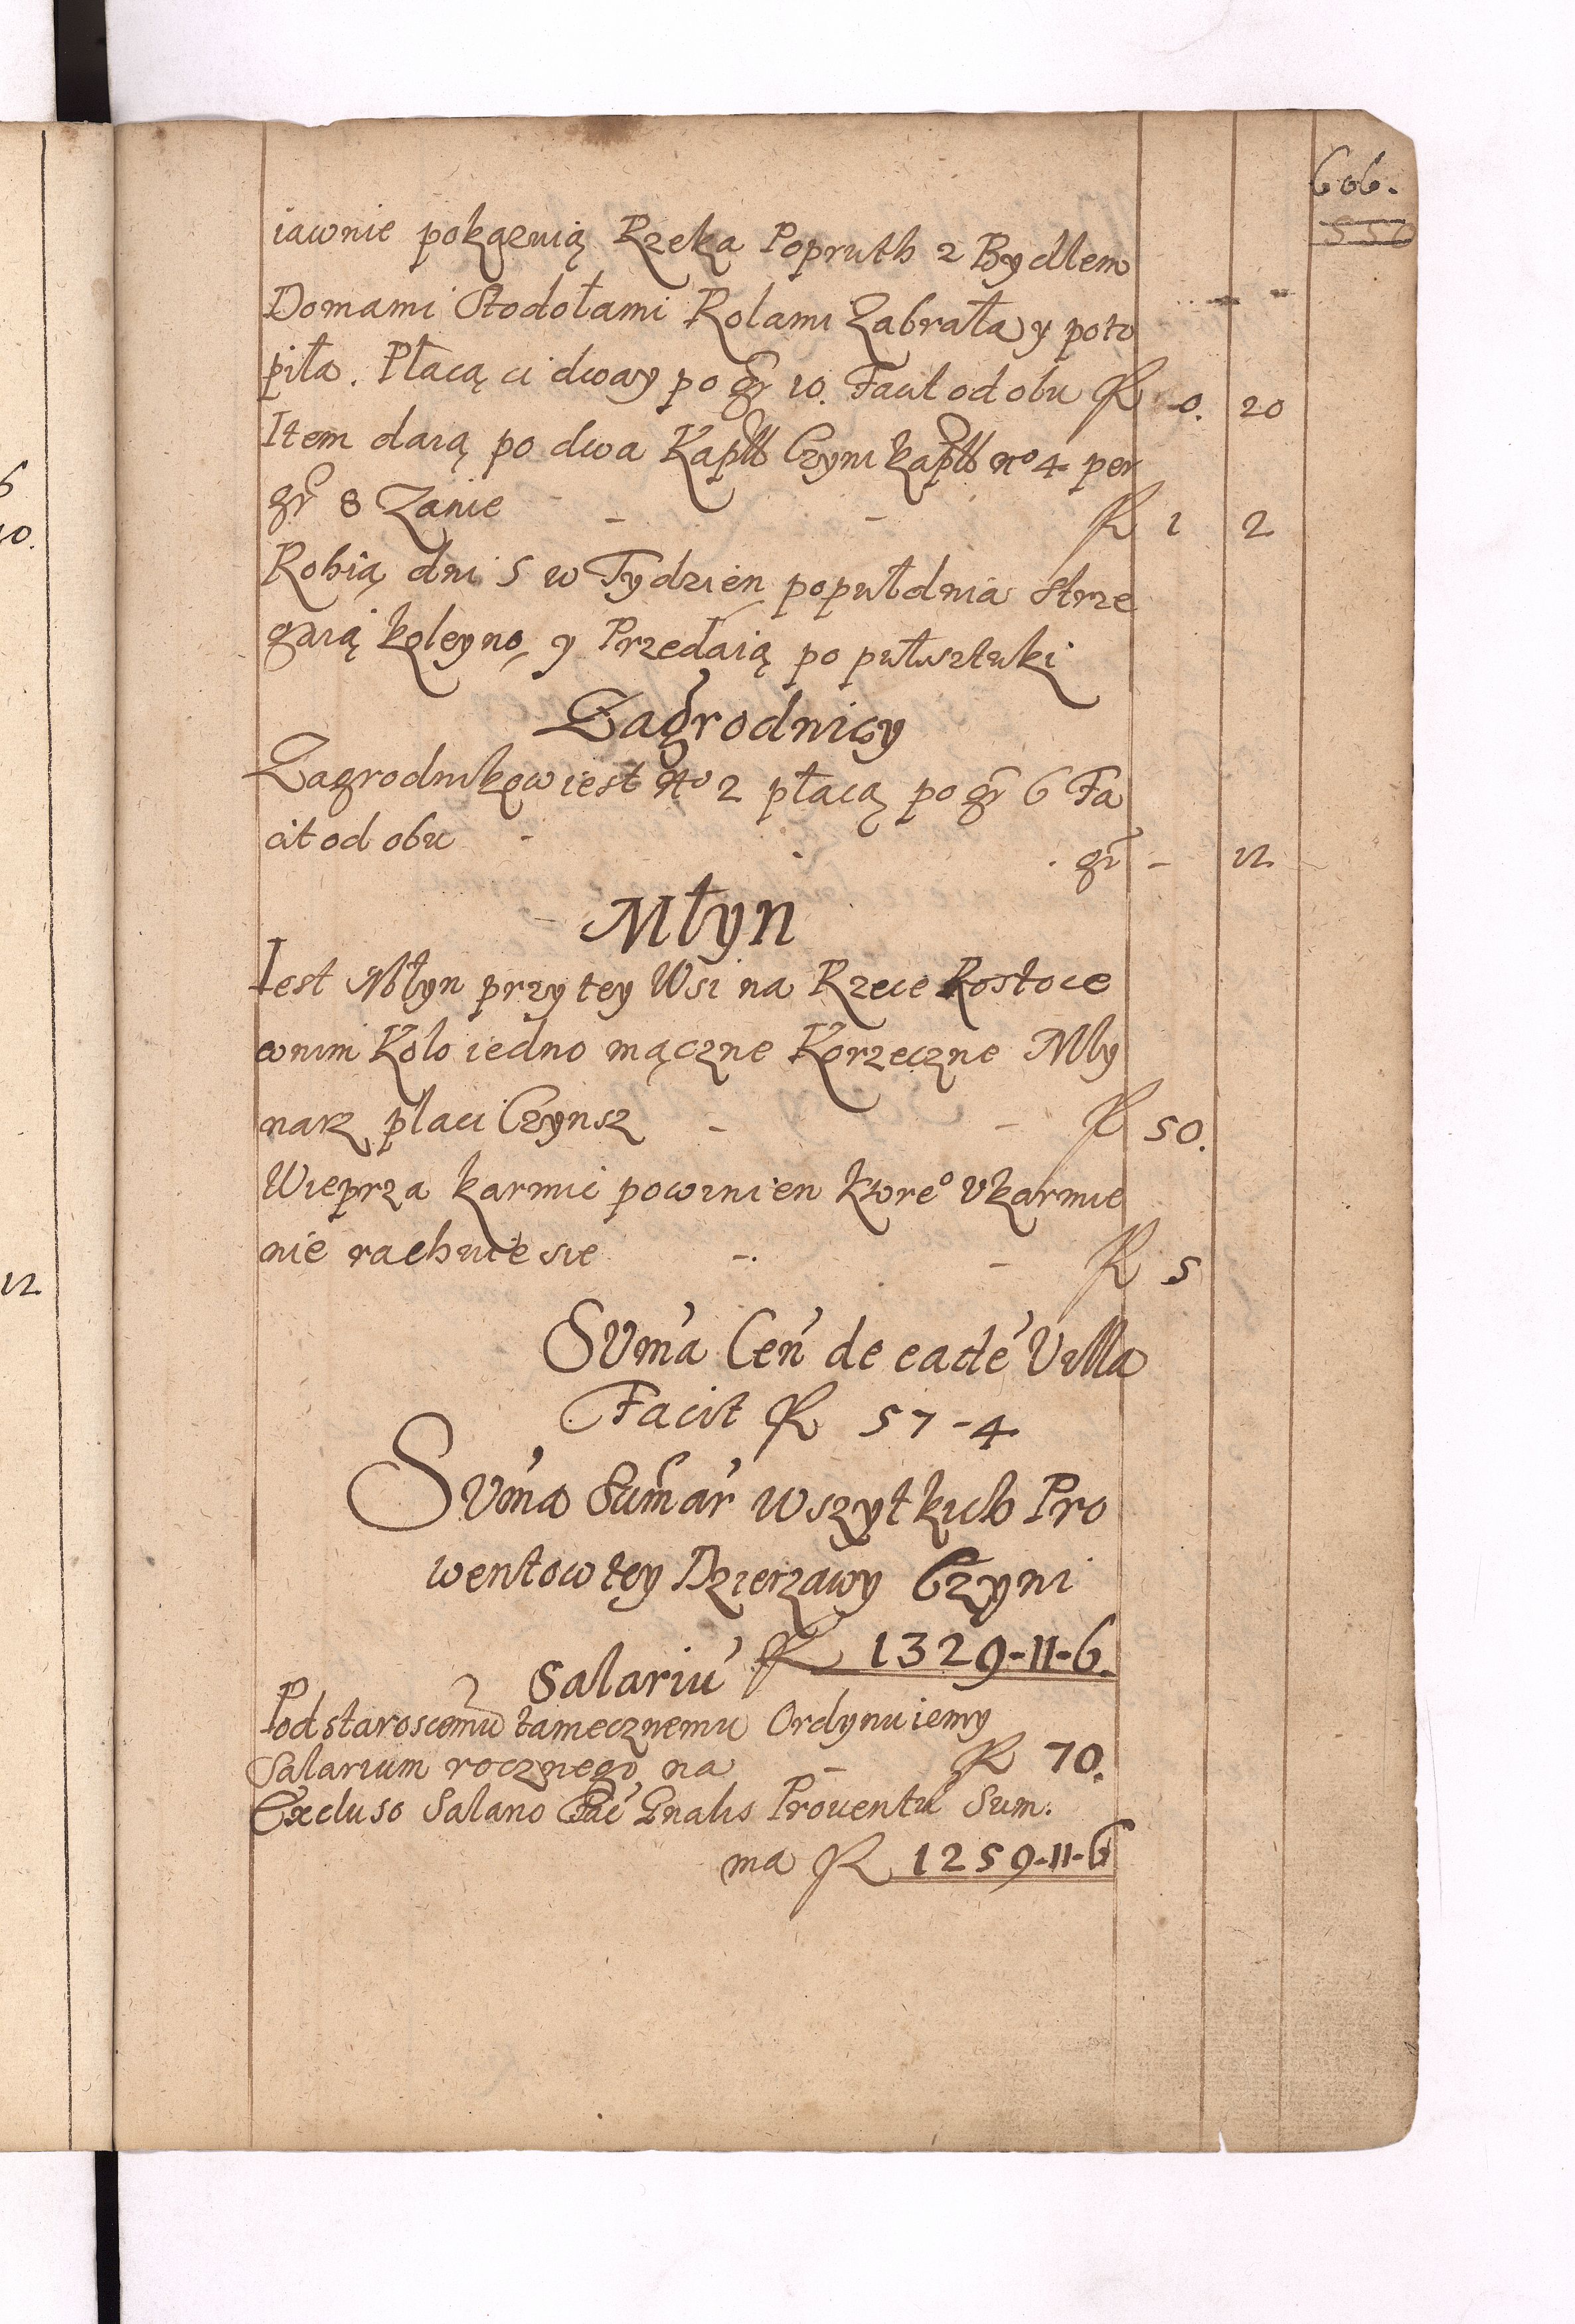 606.
550
iawnie pokązuią Rzeka Popruth z Bydlem
Domami Stodołami Rolami Zabrała y poto
piła. Płacą ci dway po gr 10. Facit od obu R 0. 20
Item daią po dwa Kapłł Czyni kapłł no 4 per
gr 8 Zanie - - R 1 2
Robią dni 5 w Tydzien popułdnia Strze
gaią koleyno, y Przedaią po pułsztuki
Zagrodnicy
Zagrodnikow iest No 2 płacą po gr 6 Fa
cit od obu - - gr - 12
Młyn
Iest Młyn przy tey Wsi na Rzece Rostoce
wnim Kolo iedno mączne Korzeczne Mły
narz placi Czynsz - - R 50.
Wieprza karmic powinien ktore° vkarmie
nie rachuie sie - - R 5
SVma Cen de eade Villa
Facit R 57-4
SVma Sumar wszytkich Pro
wentow tey Dzierzawy Czyni
R 1329-11-6.
Salariu
Podstaroscemu tamecznemu Ordynuiemy
Salarium rocznego na - R 70.
Excluso Salario Gnalis Prouentu Sum.
ma R 1259-11-6
6
10.
12